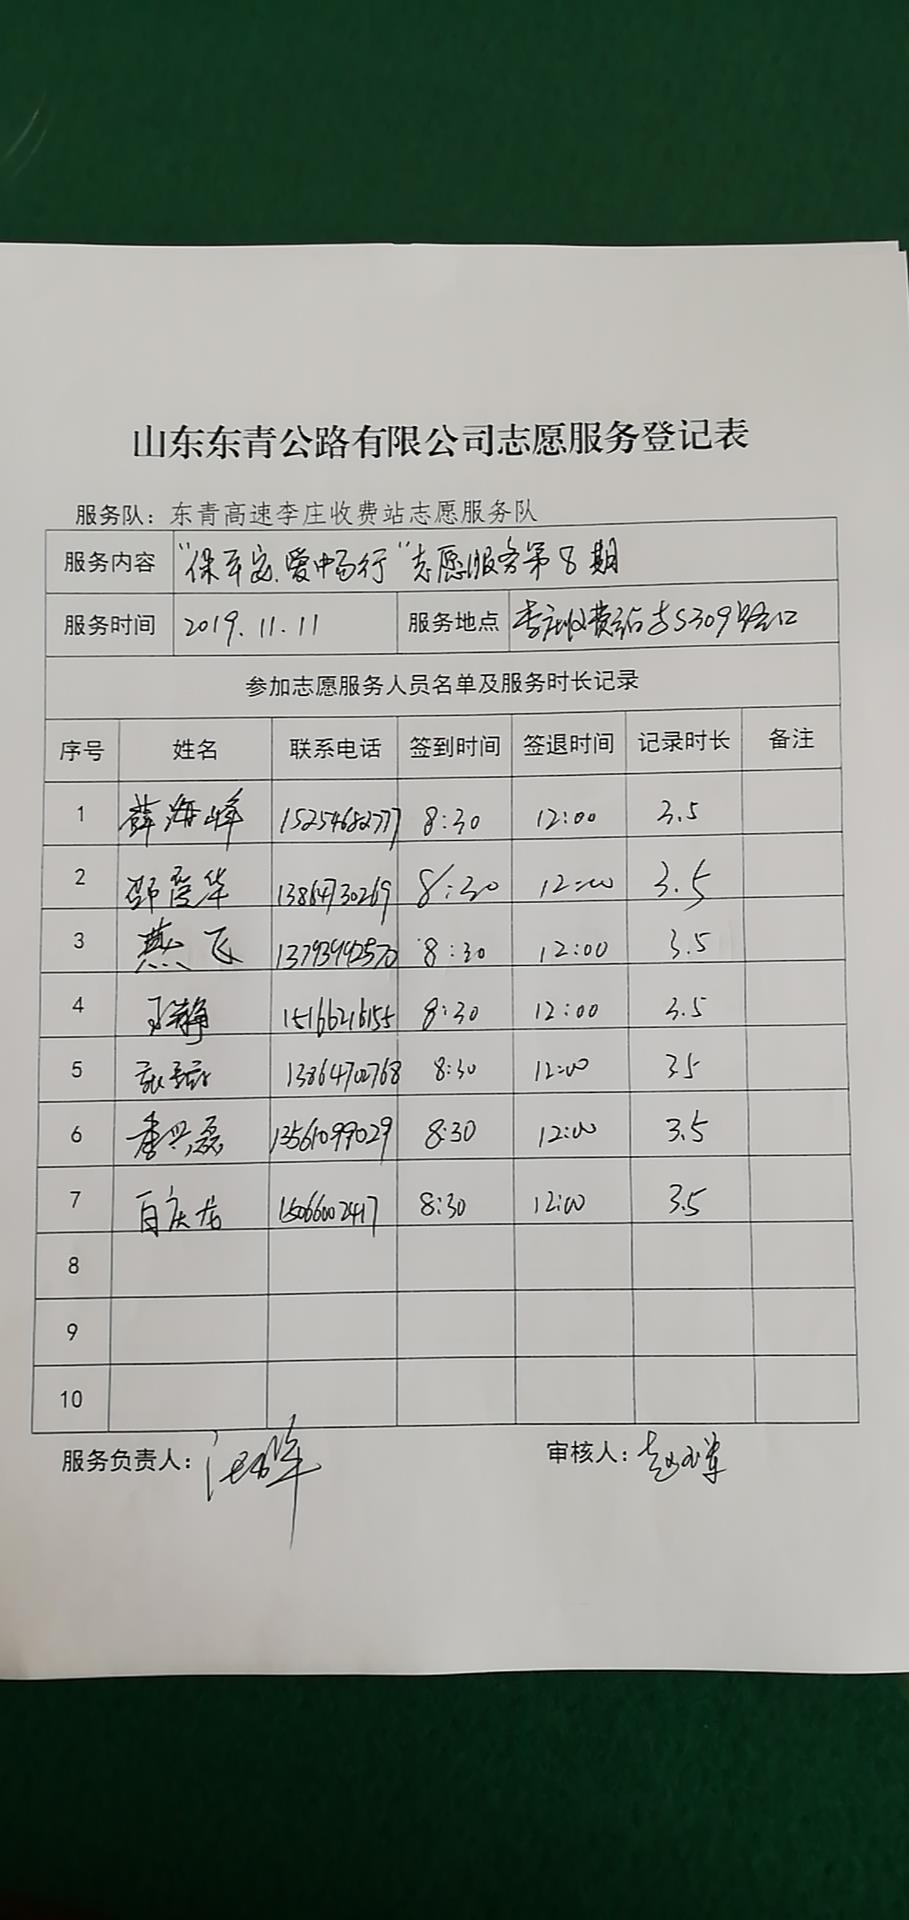 山东东青公路有限公司志愿服务登记表
服务队：东青高速李庄收费站志愿服务队
服务内容 "保平安、爱畅行"志愿服务第8期
服务时间 2019.11.11 服务地点 李庄收费站与S309路口
参加志愿服务人员名单及服务时长记录
序号 姓名 联系电话 签到时间 签退时间 记录时长 备注
1 薛海峰 15254682777 8:30 12:00 3.5
2 邵爱华 13864730269 8:30 12:00 3.5
3 燕飞 13793942570 8:30 12:00 3.5
4 15166216155 8:30 12:00 3.5
5 13864702768 8:30 12:00 3.5
6 李兴磊 13561099029 8:30 12:00 3.5
7 百庆龙 15066002417 8:30 12:00 3.5
8
9
10
服务负责人： 审核人：